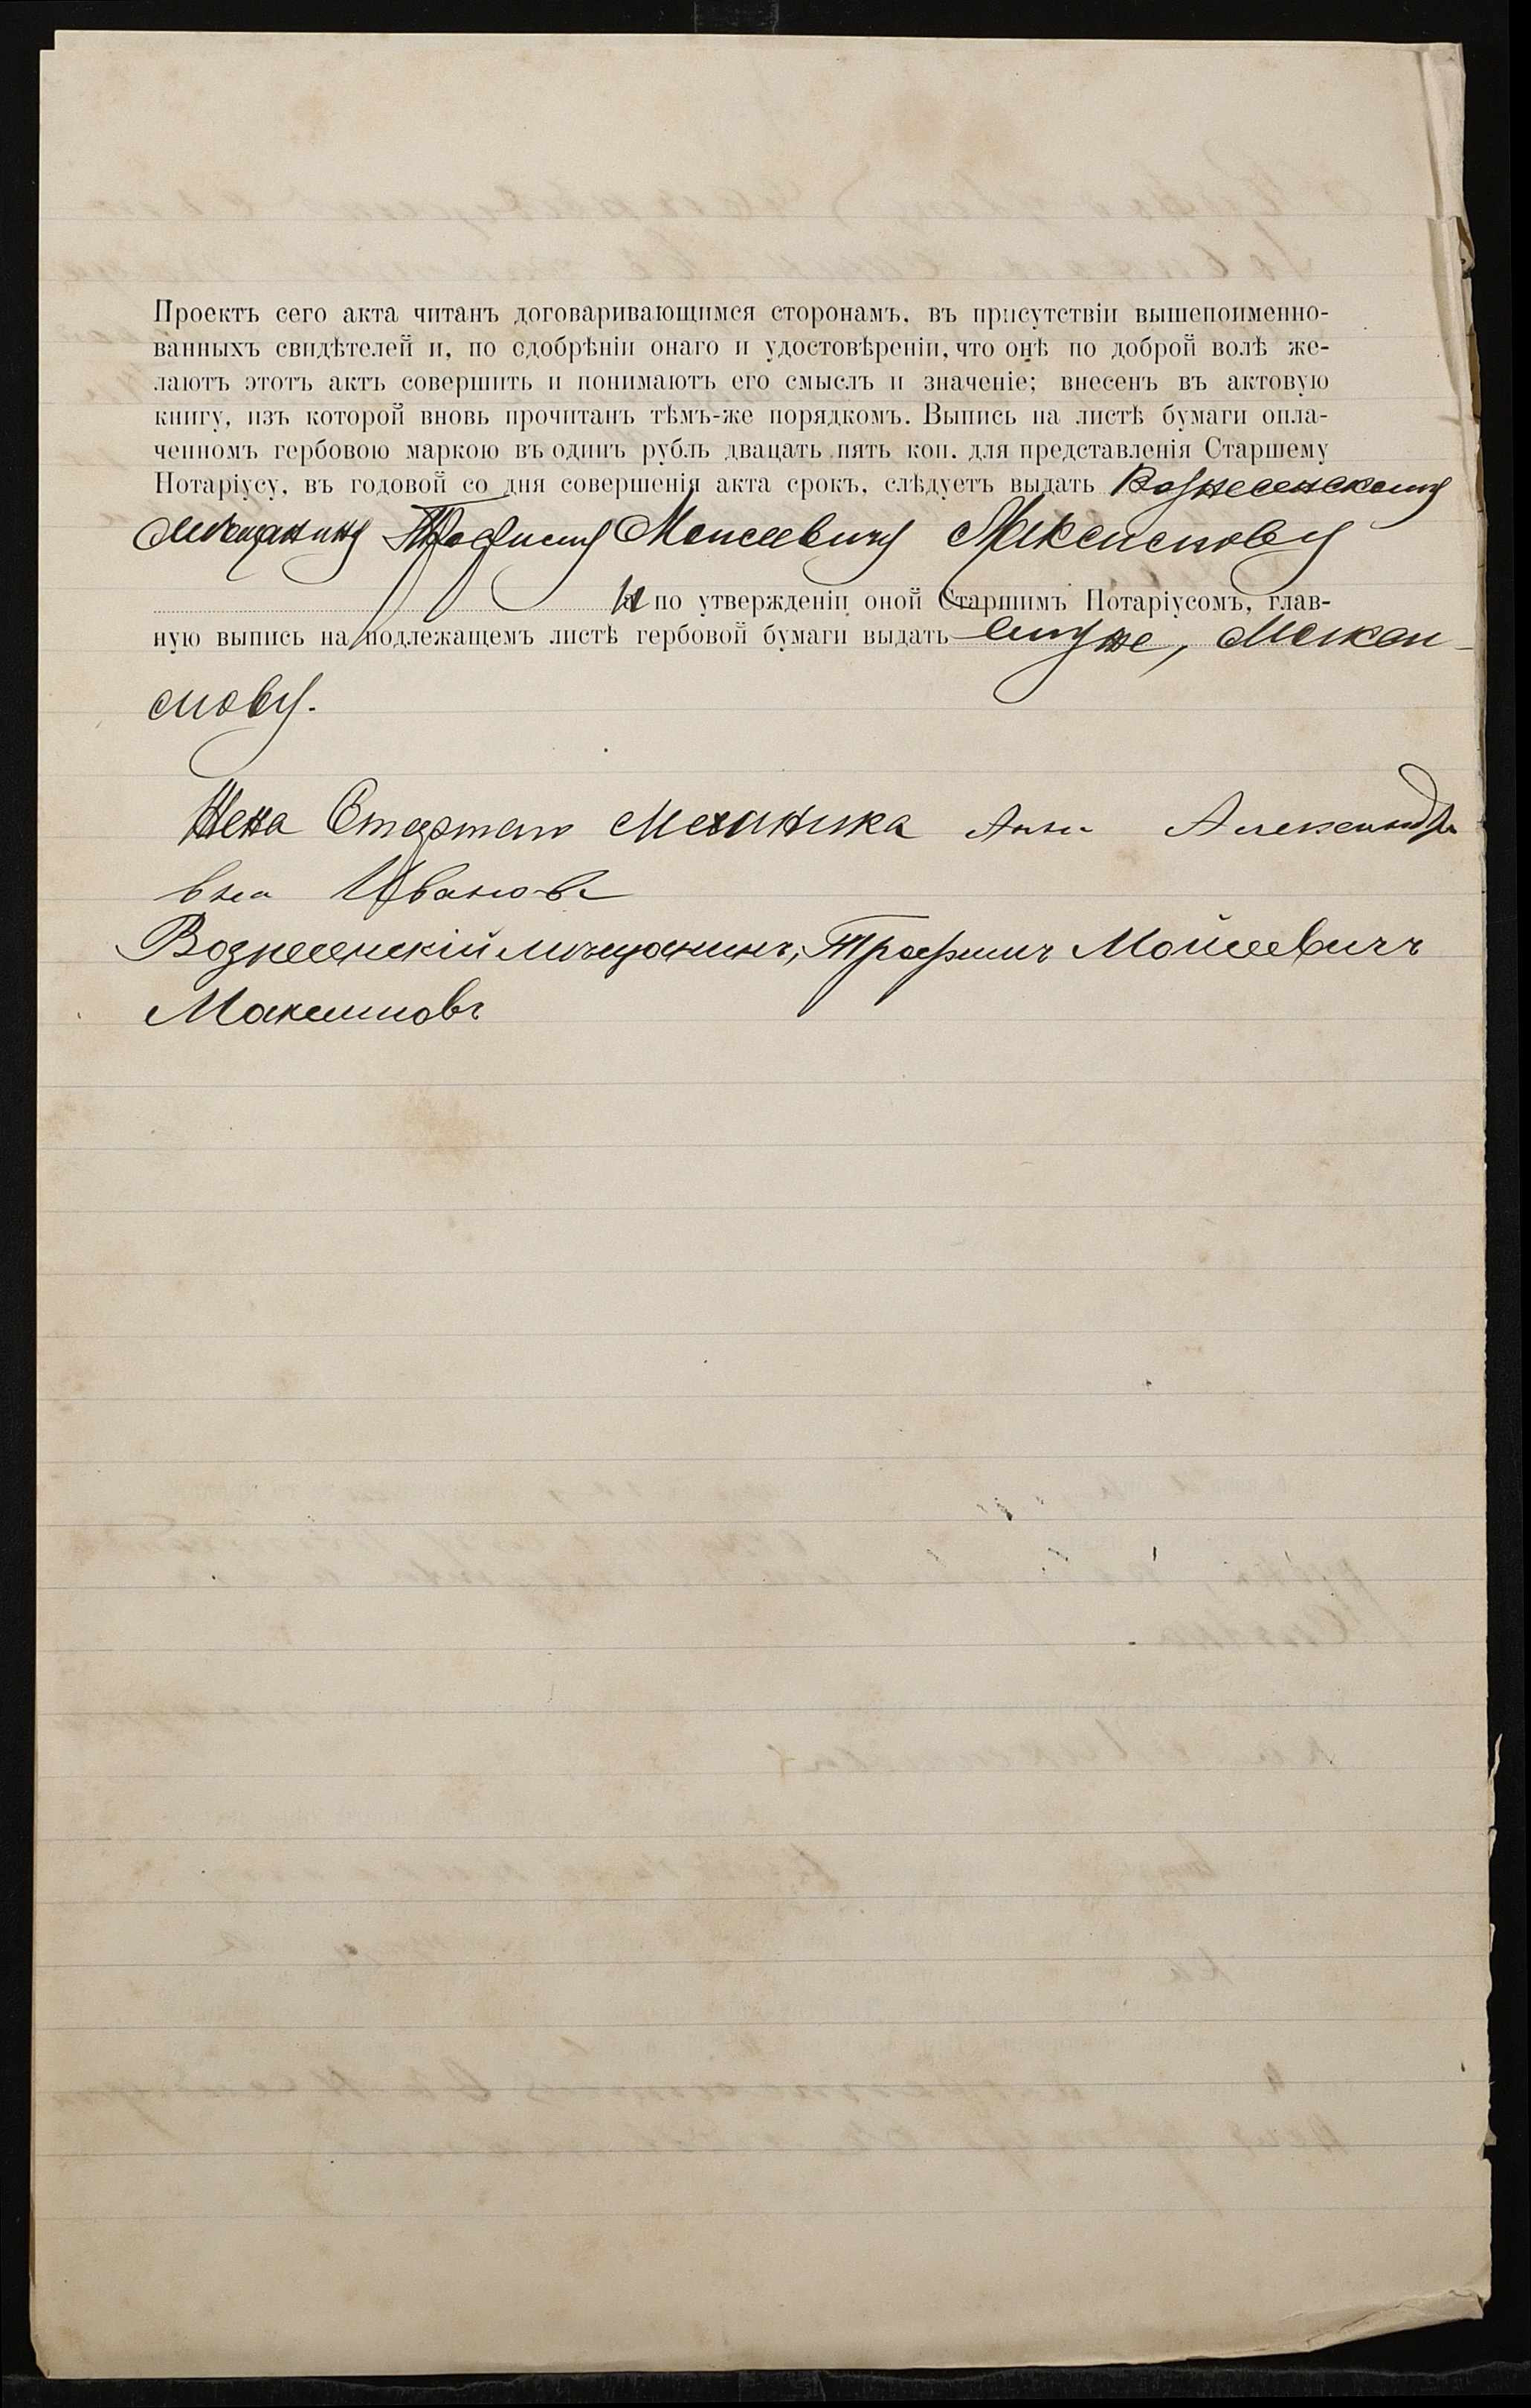 Проектъ сего акта читанъ договаривающимся сторонамъ, въ присутствіи вышепоименно-
ванныхъ свидѣтелей и, по одобрѣніи онаго и удостовѣреніи, что онѣ по доброй волѣ же-
лаютъ этотъ актъ совершить и понимаютъ его смыслъ и значеніе; внесенъ въ актовую
книгу, изъ которой вновь прочитанъ тѣмъ-же порядкомъ. Выпись на листѣ бумаги опла-
ченномъ гербовою маркою въ одинъ рубль двацать пять коп. для представленія Старшему
Нотаріусу, въ годовой со дня совершенія акта срокъ, слѣдуетъ выдать Вознесенскому
мѣщанину Трофиму Моисеевичу Максимову
и по утвержденіи оной Старшимъ Нотаріусомъ, глав-
ную выпись на подлежащемъ листѣ гербовой бумаги выдать ему же, Макси-
мову.
Жена Старшаго Механика Анна Александро
вна Иванова
Вознесенскій мѣщанинъ, Трофимъ Мойсеевичъ
Максимовъ